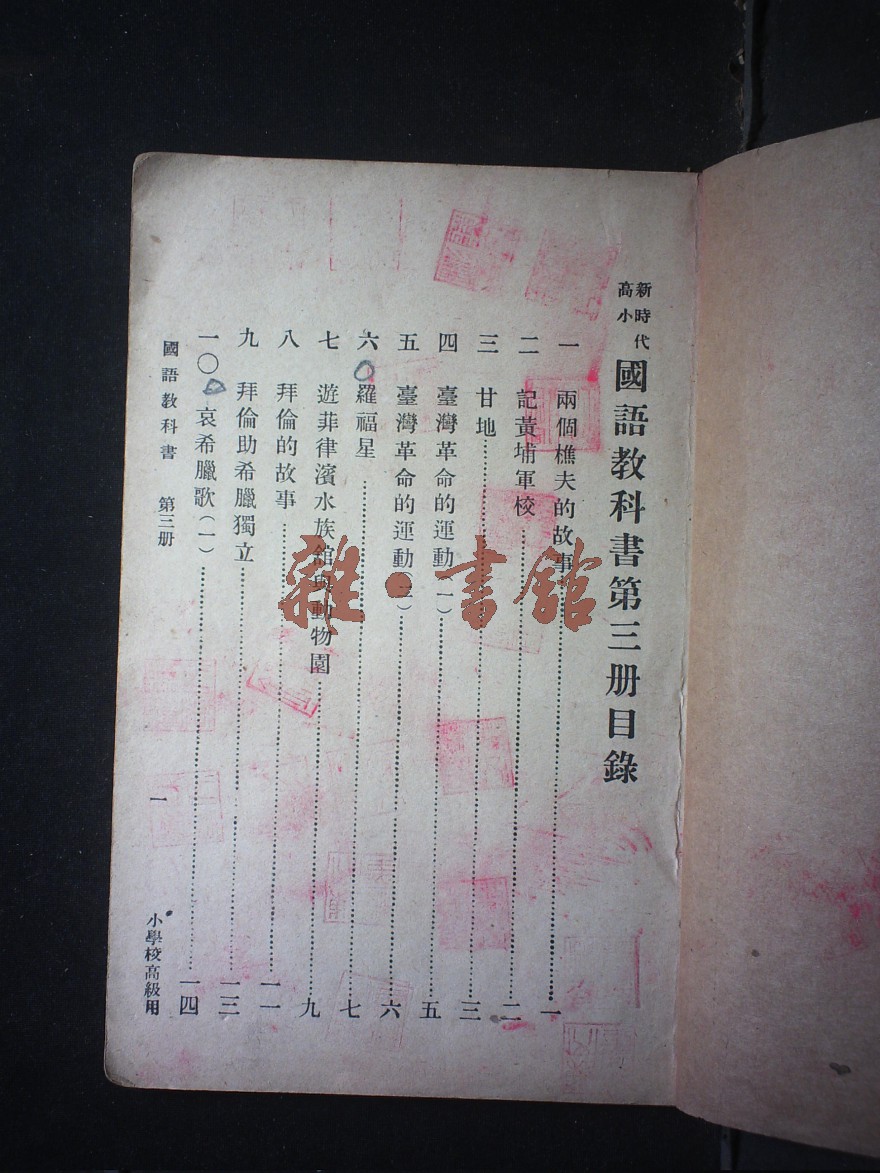 新時代
高小
國語教科書第三册目錄
一 兩個樵夫的故事……一
二 記黃埔軍校……二
三 甘地……三
四 臺灣革命的運動(一)……五
五 臺灣革命的運動(二)……六
六 羅福星……七
七 遊菲律濱水族館與動物園……九
八 拜倫的故事……一一
九 拜倫助希臘獨立……一三
一〇 哀希臘歌(一)……一四
國語教科書 第三册 一 小學校高級用
雜·書館